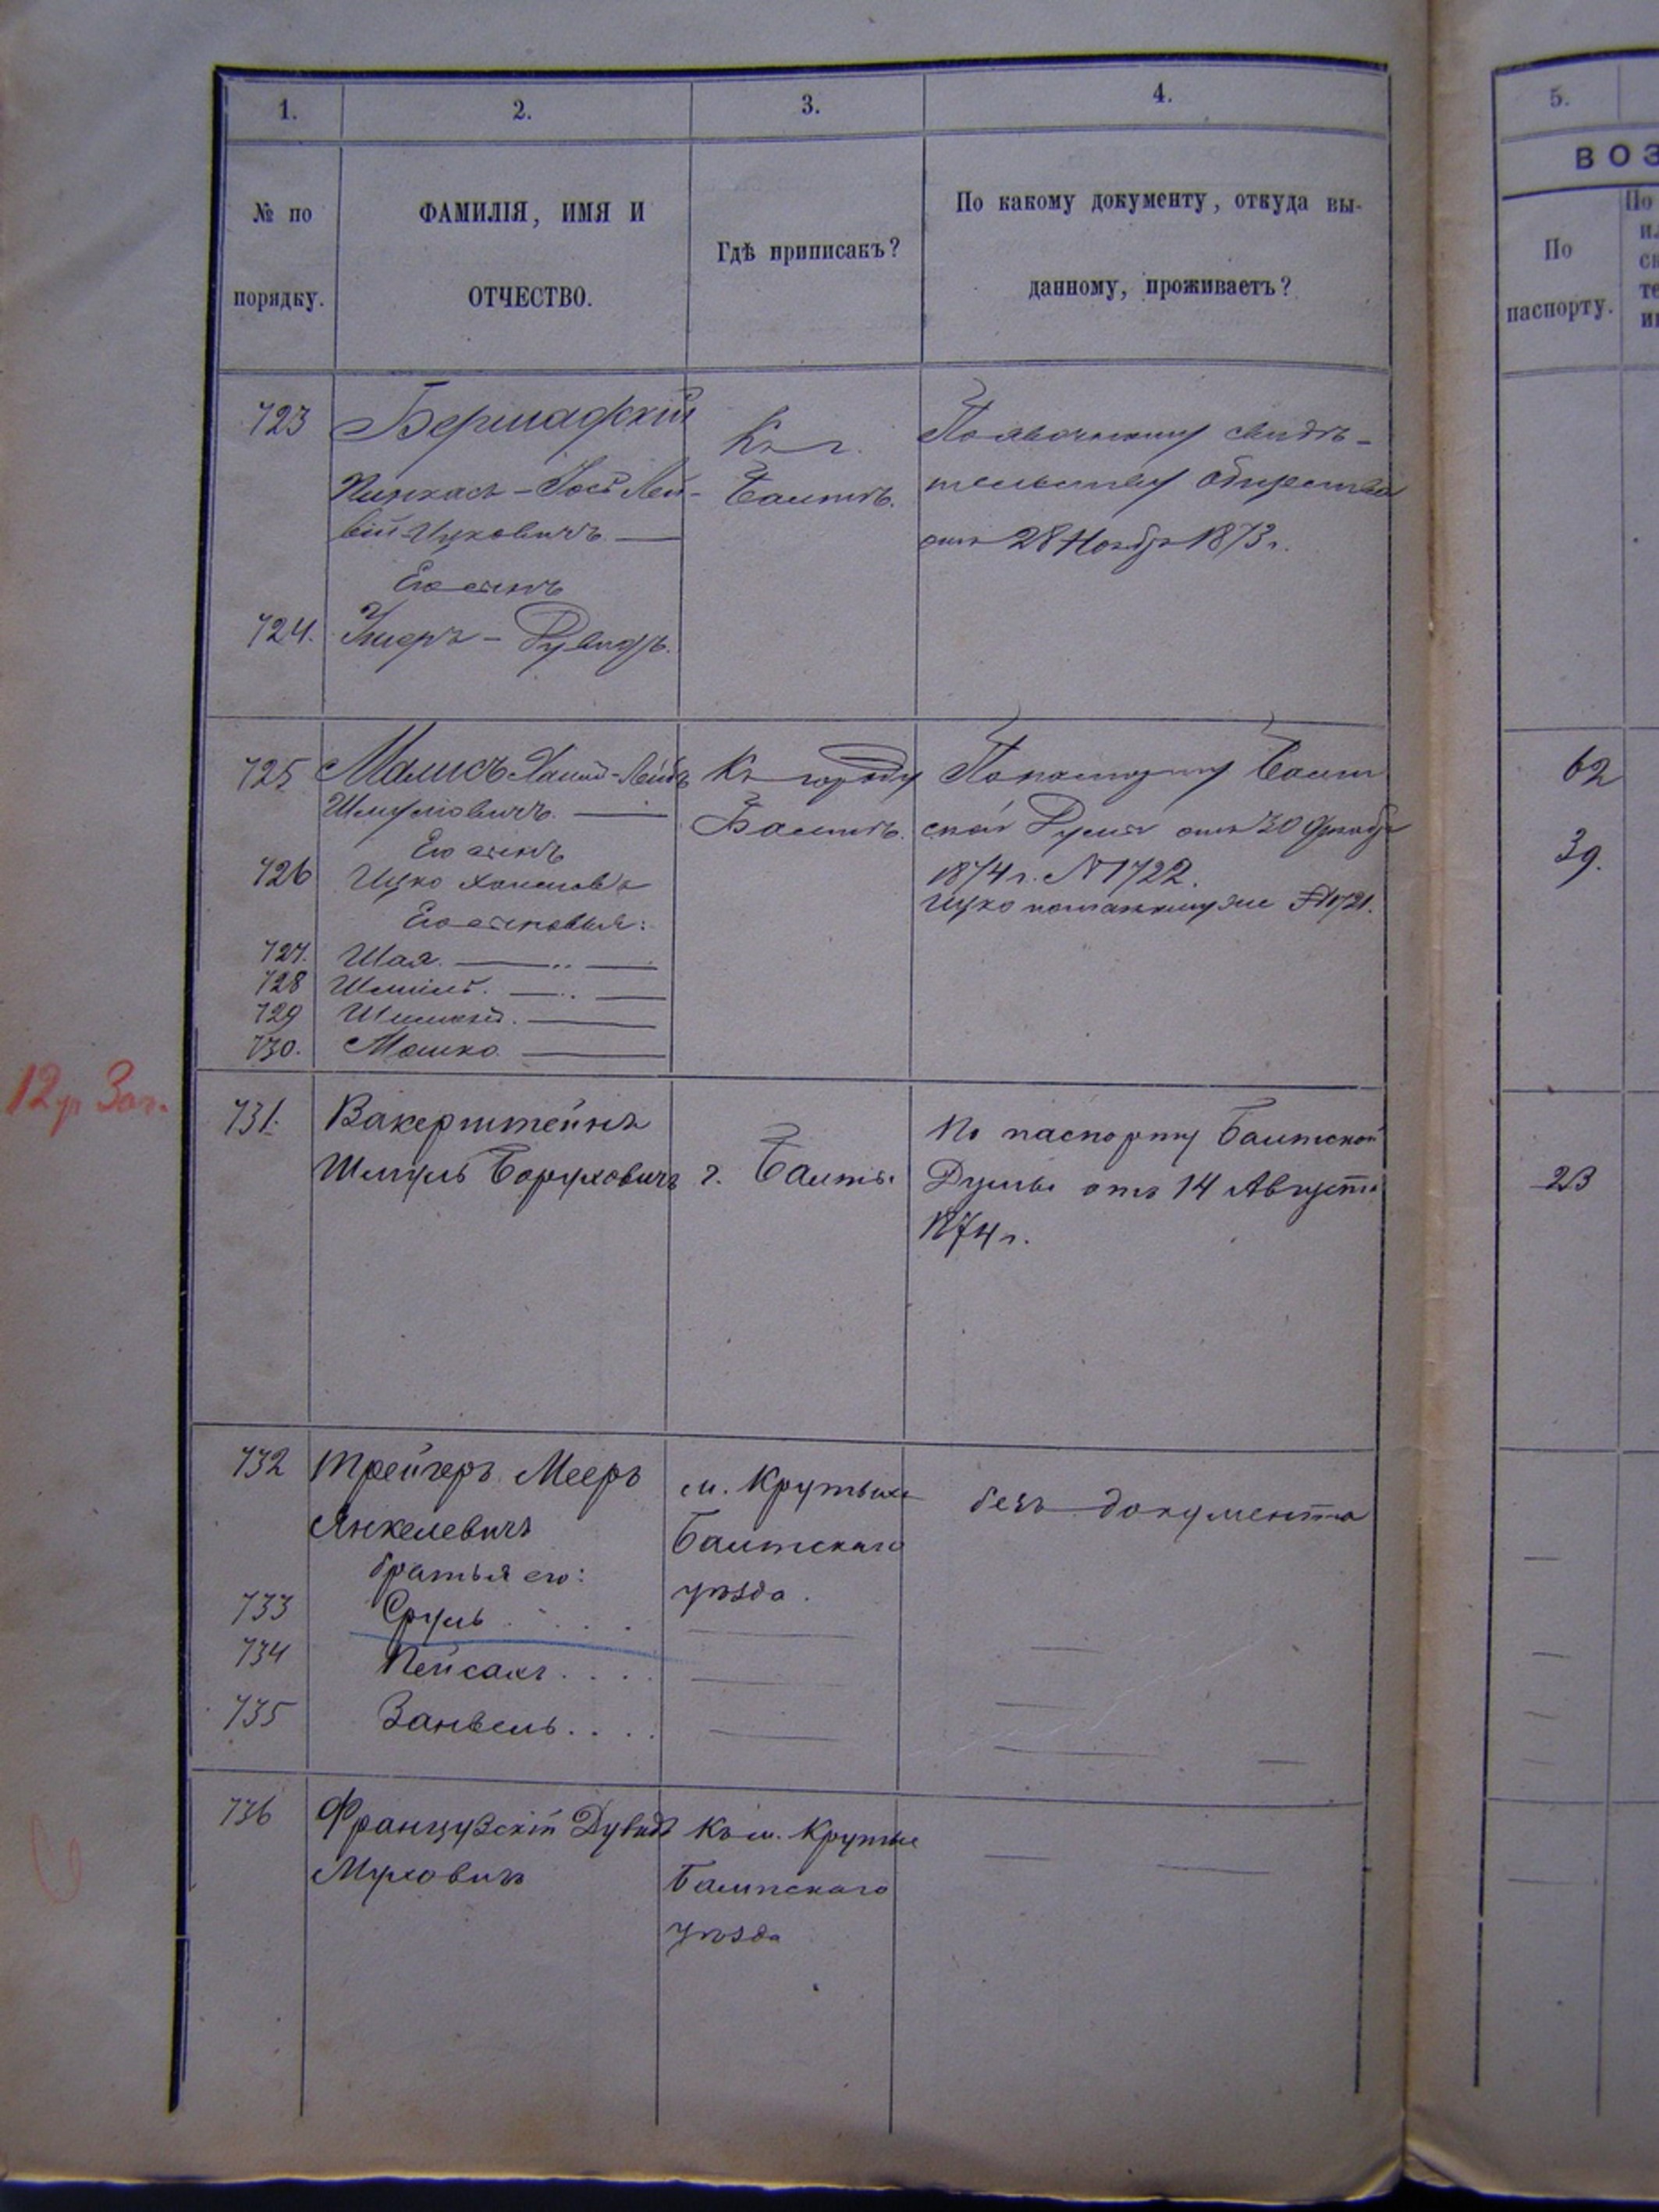 1.
2.
3.
4.
№ по
порядку.
ФАМИЛІЯ, ИМЯ И
ОТЧЕСТВО.
Гдѣ приписакъ?
По какому документу, откуда вы-
данному, проживаетъ?
5.
ВОЗ
По
паспорту.
По
723
Бершадскій
Пинхасъ-Лей-
вій Ицковичъ
Къ г.
Балтѣ.
По явочному свидѣ-
тельству общества
отъ 28 Ноября 1873 г.
Его сынъ
724. Рувидъ.
725 Малисъ Хаимъ-Лейбъ
Шмулевичъ.
Къ городу
Балтѣ.
По паспорту Балт
ской Думы отъ 30 Декабр
1874 г. № 1722.
Ицко по таковому же № 1721.
62
39.
Его сынъ
726 Ицко Хаимовъ
Его сыновья:
727. Шая.
728 Шмиль.
729
730. Мошко
12 Зап.
731. Вакерштейнъ
Шмуль Боруховичъ
г. Балты
По паспорту Балтской
Думы отъ 14 Августа
1874 г.
23
732 Трейгеръ Мееръ
Янкелевичъ
м. Крутыхъ
Балтскаго
уѣзда.
безъ документа
братья его:
733 Сруль
734 Пейсахъ
735 Занвель
736 Французскій Дувидъ
Мурховичъ
Къ м. Крутые
Балтскаго
уѣзда